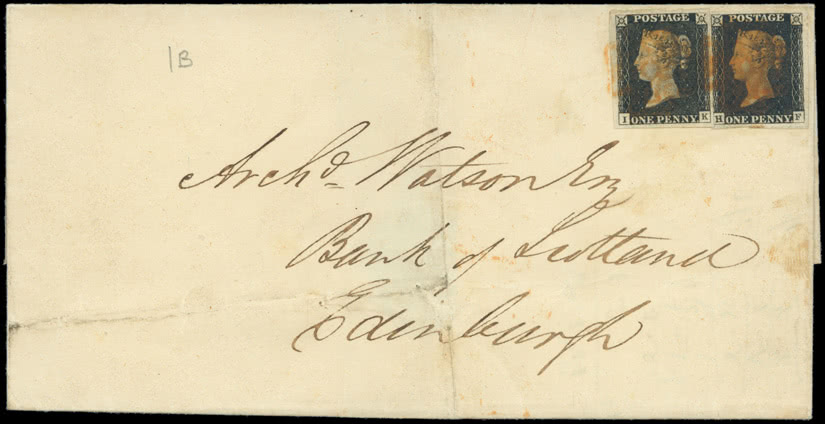 POSTAGE POSTAGE
I ONE PENNY K H ONE PENNY F
1B
Archd Watson Esq
Bank of Scotland
Edinburgh